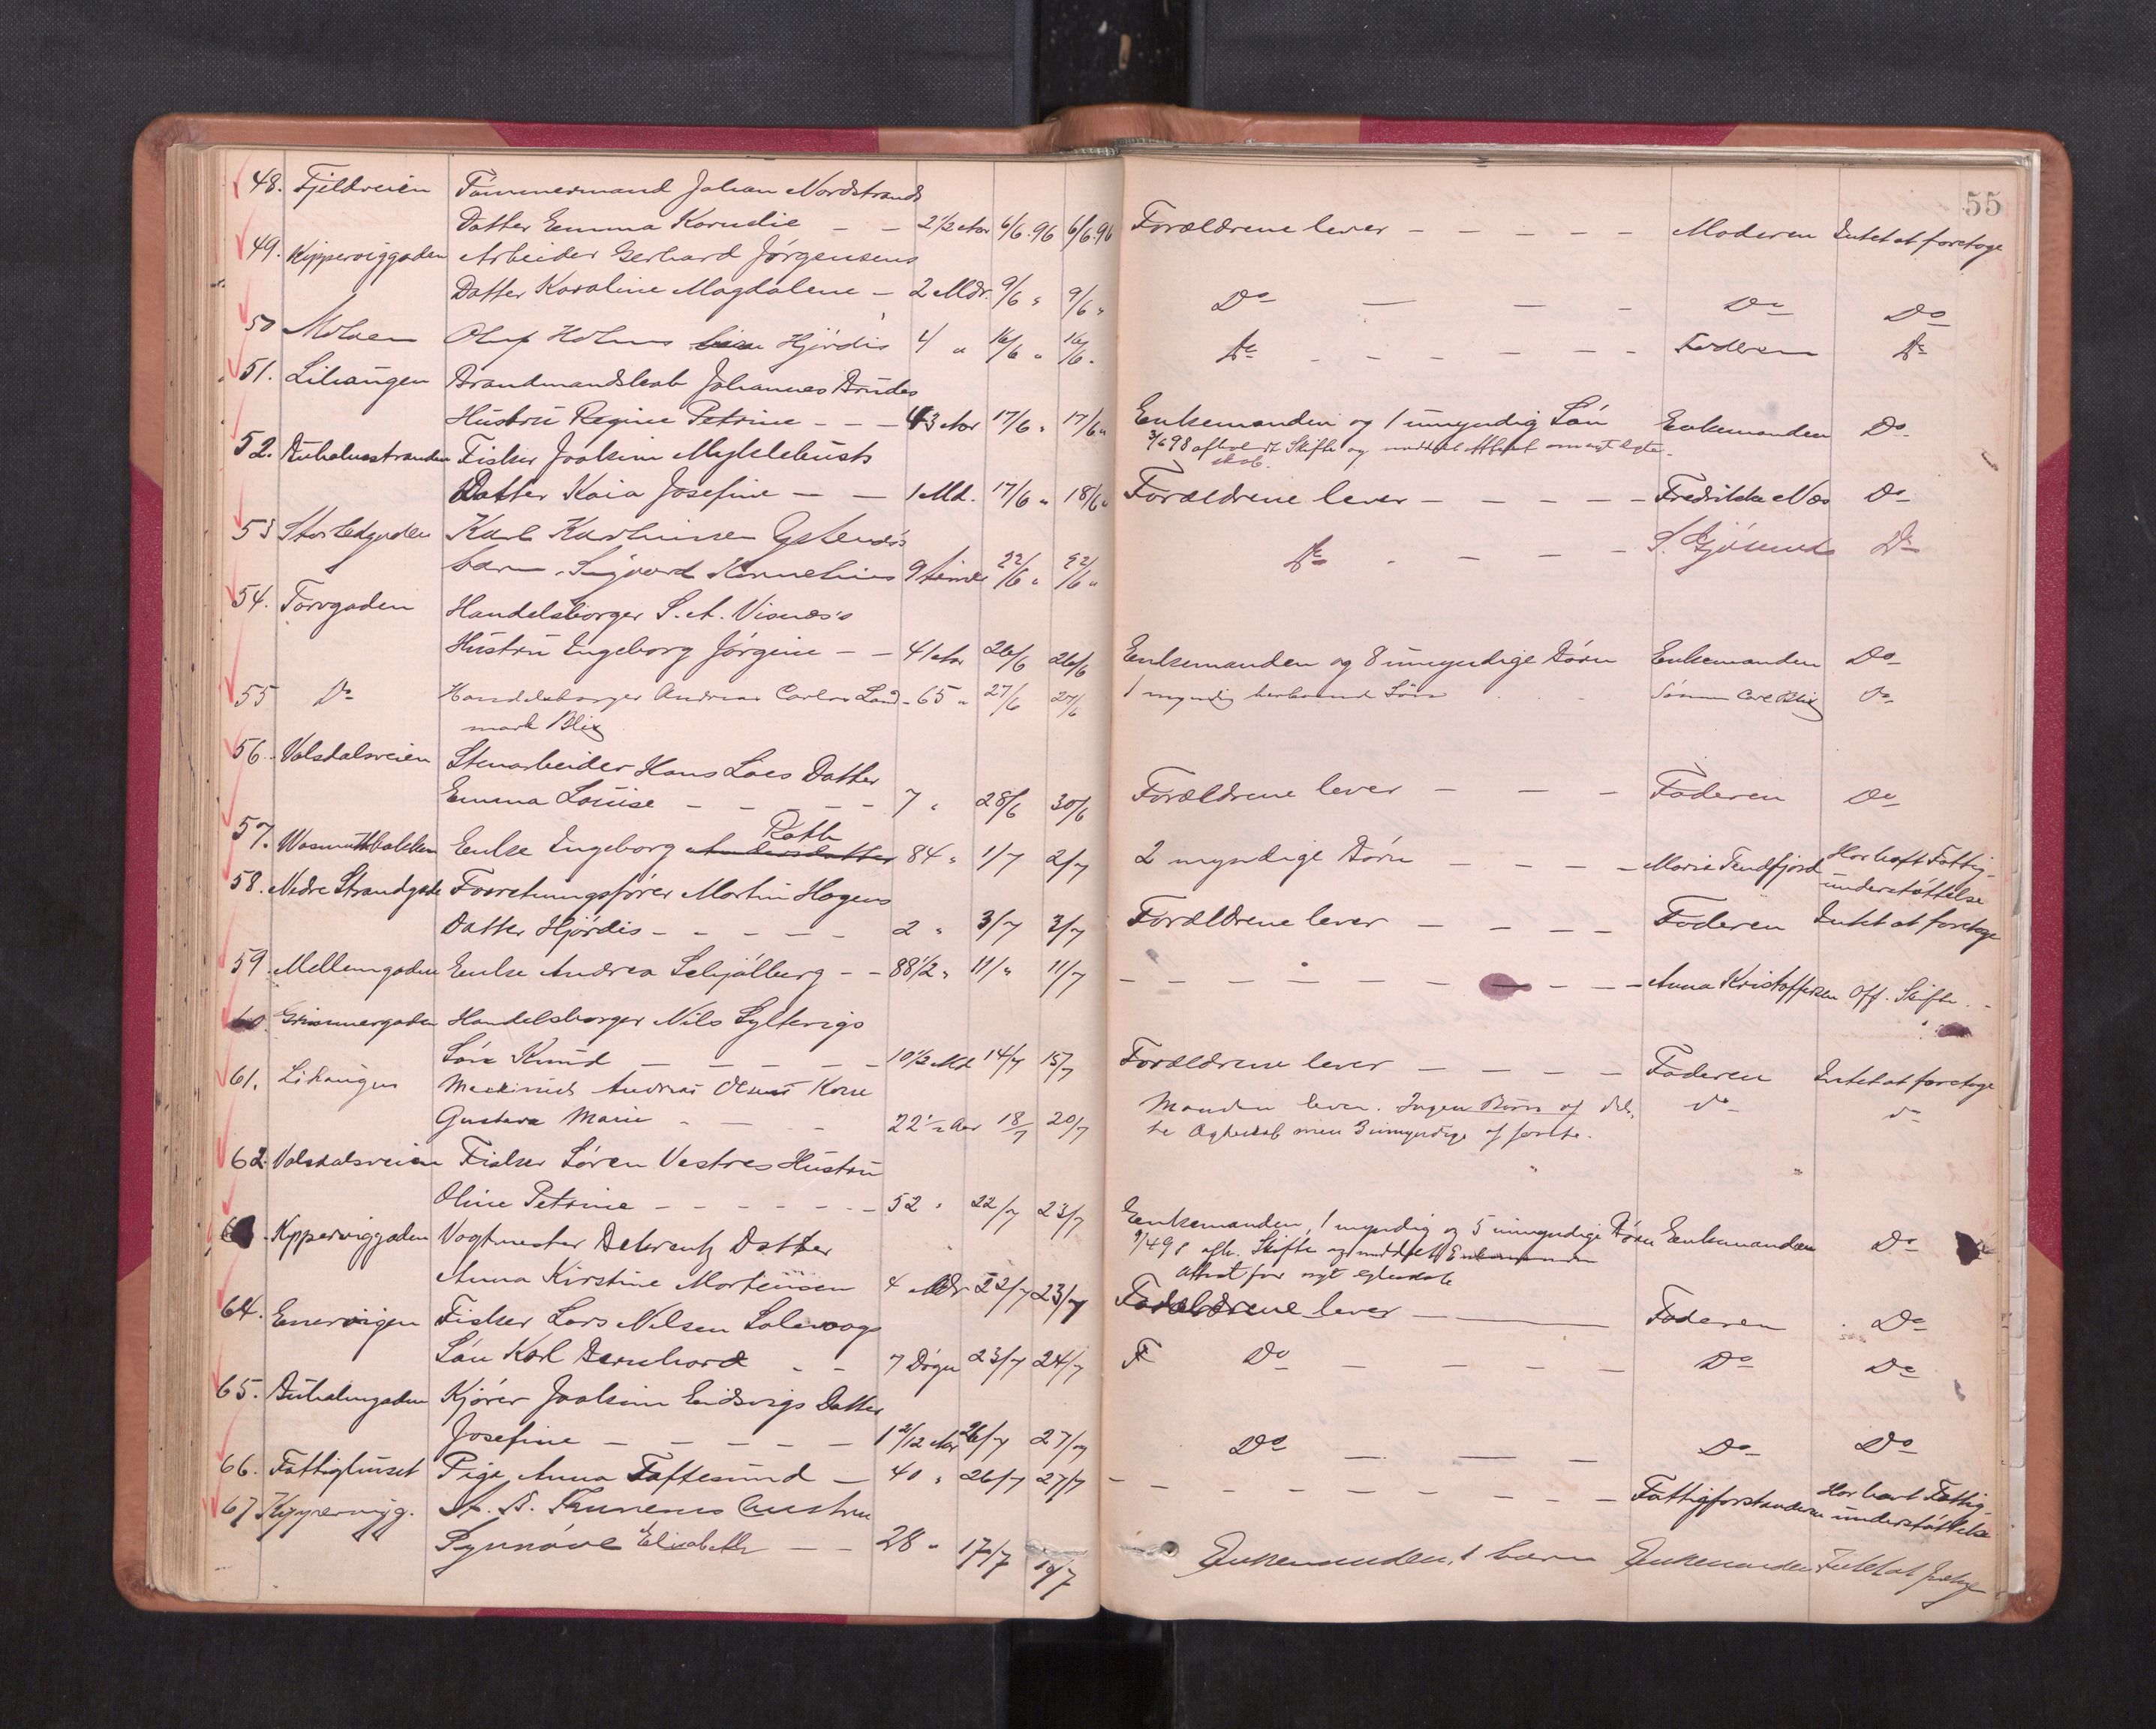 55
48. Fjeldveien Tømmermand Johan Nordstrands
Datter Emma Kornelie — — 2 1/2 Aar 6/6.96 6/6.96 Forældrene lever — — — — — Moderen Intet at foretage
49. Kipperviggaden Arbeider Gerhard Jørgensens
Datter Karoline Magdalene — 2 Mdr. 9/6 " 9/6 " Do — — — Do Do
50 Molaen Oluf Holms Hjördis 4 " 16/6 " 16/6 " Do - - - - - - Faderen Do
51. Lihaugen Brandmandskab Johannes Brudes
Hustru Regine Petrine - - - 43 Aar 17/6 " 17/6 " Enkemanden og 1 umyndig Søn Enkemanden Do
3/6 98 afhol dt Skifte og meddelt Attest om nyt Ægte-
skab.
52. Buholmstranden Fisker Joakim Myklebusts
Datter Kaia Josefine — — 1 Md. 17/6 " 18/6 " Forældrene lever — — — — — Fredrikke Næs Do
53 Storhedgaden Karl Karlsines
barn Sigvard Kornelius 9 timer 22/6 " 22/6 " Do - - - - S. Gjøsund Do
54. Torvgaden Handelsborger S. A. Visnæs's
Hustru Ingeborg Jørgine — — 41 Aar 26/6 26/6 Enkemanden og 8 umyndige Børn Enkemanden Do
55 Do Handelsborger Andreas Carlos Land- 65 " 27/6 27/6 1 myndig herboende Søn Sønnen Carl Blix Do
mark Blix
56. Volsdalsveien Stenarbeider Hans Løes Datter
Emma Louise — — — — — 7 " 28/6 30/6 Forældrene lever — — — Faderen Do
Rath
57. Wasmuthbakken Enke Ingeborg Andersdatter 84 " 1/7 2/7 2 myndige Børn — — — — Marie Tendfjord Har havt Fattig-
understøttelse
58. Nedre Strandgade Forretningsfører Martin Hagens
Datter Hjördis — — — — — 2 " 3/7 3/7 Forældrene lever — — — — Faderen Intet at foretage
59. Mellemgaden Enke Andrea Schjølberg — — 88 1/2 " 11/" 11/7 — — — — — — — — — — Anna Kristoffersen Off. Skifte. -
60. Grimmergaden Handelsborger Nils Syltevigs
Søn Knud — — — — — 10 1/2 Md 14/7 15/7 Forældrene lever — — — — Faderen Intet at foretage
61. Lihaugen Maskinist Andreas Olsens Kone
Gustava Marie - — - 22 1/2 Aar 18/7 20/7 Manden lever. Ingen Børn af det- do do
te Ægteskab men 3 umyndige af første.
62. Volsdalsveien Fisker Søren Vestres Hustru
Oline Petrine — — — — — — — 52 " 22/7 23/7 Enkemanden, 1 myndig og 5 umyndige Børn Enkemanden Do
9/4 98 afh. Skifte og meddelt Enkemanden
Attest for nyt egteskab
Kipperviggaden Vagtmester Behrentz Datter
Anna Kirstine Mortensen 4 Mdr 22/7 23/7 Forældrene lever — — Faderen Do
64. Enervigen Fisker Lars Nilsen Solevaags
Søn Karl Bernhard — — 7 Døgn 23/7 24/7 F Do — — — — — Do Do
65. Buholmgaden Kjører Joakim Eidsvigs Datter
Josefine — — — — — 1 2/12 Aar 26/7 27/7 Do — — — Do Do
66. Fattighuset Pige Anna Taftesund — 40 " 26/7 27/7 — — — — — — — — — — Fattigforstanderen Har havt Fattig-
understøttelse
67 Kipperviyg. Hustru
Synnøve Elisabeth — — 28 " 17/7 19/7 Enkemanden, 1 barn Enkemanden Intet at foretage